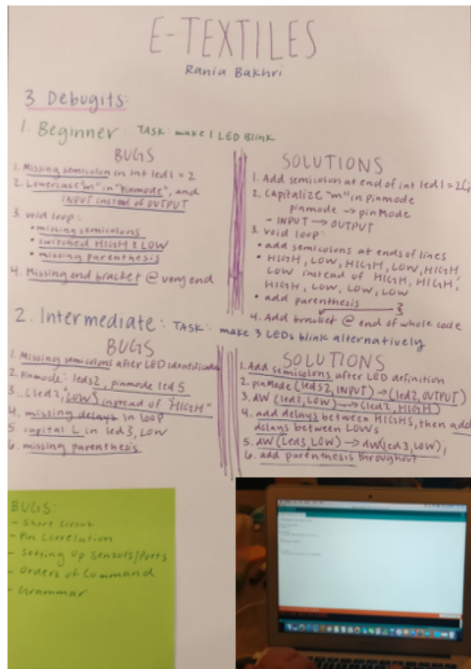 E-TEXTILES
Rania Bakhri
3 Debugits:
1. Beginner: TASK: make 1 LED blink
BUGS
1. Missing semicolon in int led1 = 2
2. Lowercase "m" in "pinmode", and
INPUT instead of OUTPUT
3. void loop:
• missing semicolons
• switched HIGH & LOW
• missing parenthesis
4. Missing end bracket @ very end
SOLUTIONS
1. Add semicolon at end of int led1 = 2
2. Capitalize "m" in Pinmode
pinmode → pinMode
- INPUT → OUTPUT
3. void loop:
• add semicolons at ends of lines
• HIGH, LOW, HIGH, LOW, HIGH,
LOW instead of HIGH, HIGH,
HIGH, LOW, LOW, LOW
• add parenthesis
4. Add bracket @ end of whole code
2. Intermediate: TASK: make 3 LEDs blink alternatively
BUGS
1. Missing semicolons after LED
2. pinmode: leds2, pinmode led5
3. (led2, LOW) instead of "HIGH"
4. missing delays in loop
5. capital L in led3, LOW
6. missing parenthesis
SOLUTIONS
1. Add semicolons after LED definition
2. pinMode (leds2, INPUT) → (led2, OUTPUT)
3. AW (led2, LOW) → (led2, HIGH)
4. add delays between HIGHS, then add
delays between LOWs
5. AW (Led3, LOW) → AW (led3, LOW);
6. add parenthesis throughout
BUGS:
- Short Circuit
- Pin Correlation
- Setting Up Sensors/Ports
- Orders of Command
- Grammar